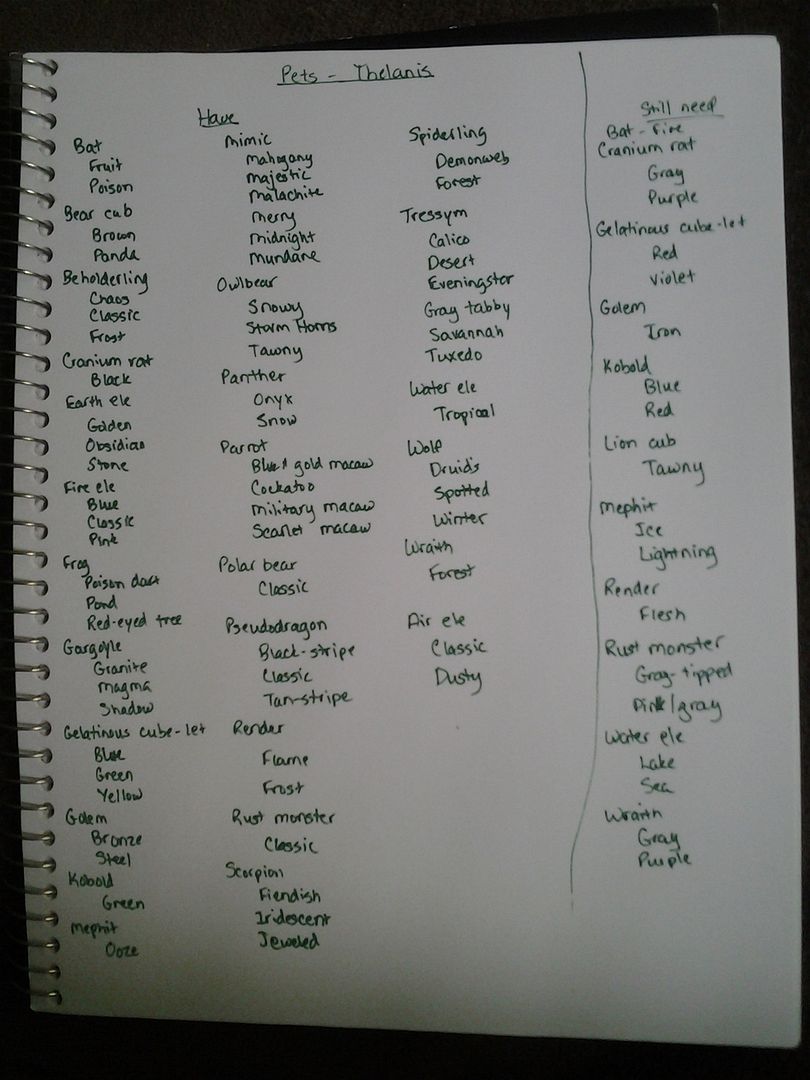 Pets - Thelanis
Have
Bat
Fruit
Poison
Bear cub
Brown
Panda
Beholderling
Chaos
Classic
Frost
Cranium rat
Black
Earth ele
Golden
Obsidian
Stone
Fire ele
Blue
Classic
Pink
Frog
Poison dart
Pond
Red-eyed tree
Gargoyle
Granite
Magma
Shadow
Gelatinous cube-let
Blue
Green
Yellow
Golem
Bronze
Steel
Kobold
Green
Mephit
Ooze
Mimic
Mahogany
Majestic
Malachite
Merry
Midnight
Mundane
Owlbear
Snowy
Storm Horns
Tawny
Panther
Onyx
Snow
Parrot
Blue & gold macaw
Cockatoo
Military macaw
Scarlet macaw
Polar bear
Classic
Pseudodragon
Black-stripe
Classic
Tan-stripe
Render
Flame
Frost
Rust monster
Classic
Scorpion
Fiendish
Iridescent
Jeweled
Spiderling
Demonweb
Forest
Tressym
Calico
Desert
Eveningstar
Gray tabby
Savannah
Tuxedo
Water ele
Tropical
Wolf
Druid's
Spotted
Winter
Wraith
Forest
Air ele
Classic
Dusty
Still need
Bat - Fire
Cranium rat
Gray
Purple
Gelatinous cube-let
Red
Violet
Golem
Iron
Kobold
Blue
Red
Lion cub
Tawny
Mephit
Ice
Lightning
Render
Flesh
Rust monster
Gray-tipped
Pink/gray
Water ele
Lake
Sea
Wraith
Gray
Purple